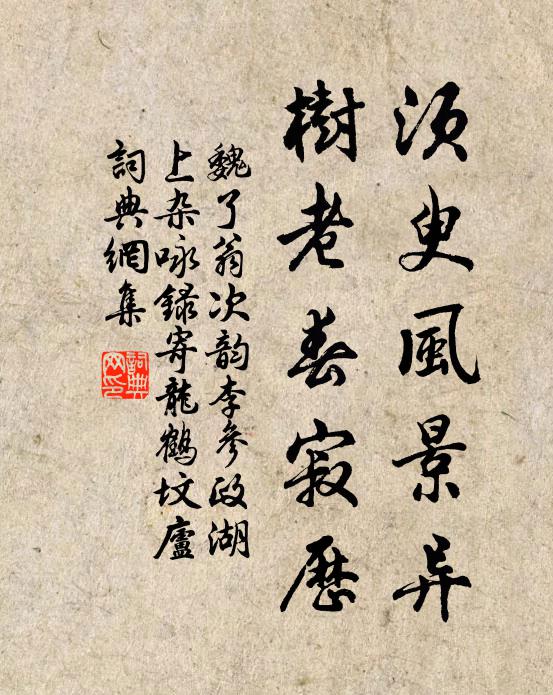 须臾風景异
樹老春寂歷
魏了翁次韵李參政湖
上杂咏録寄龍鶴坟廬
詞典網集
詞典网印